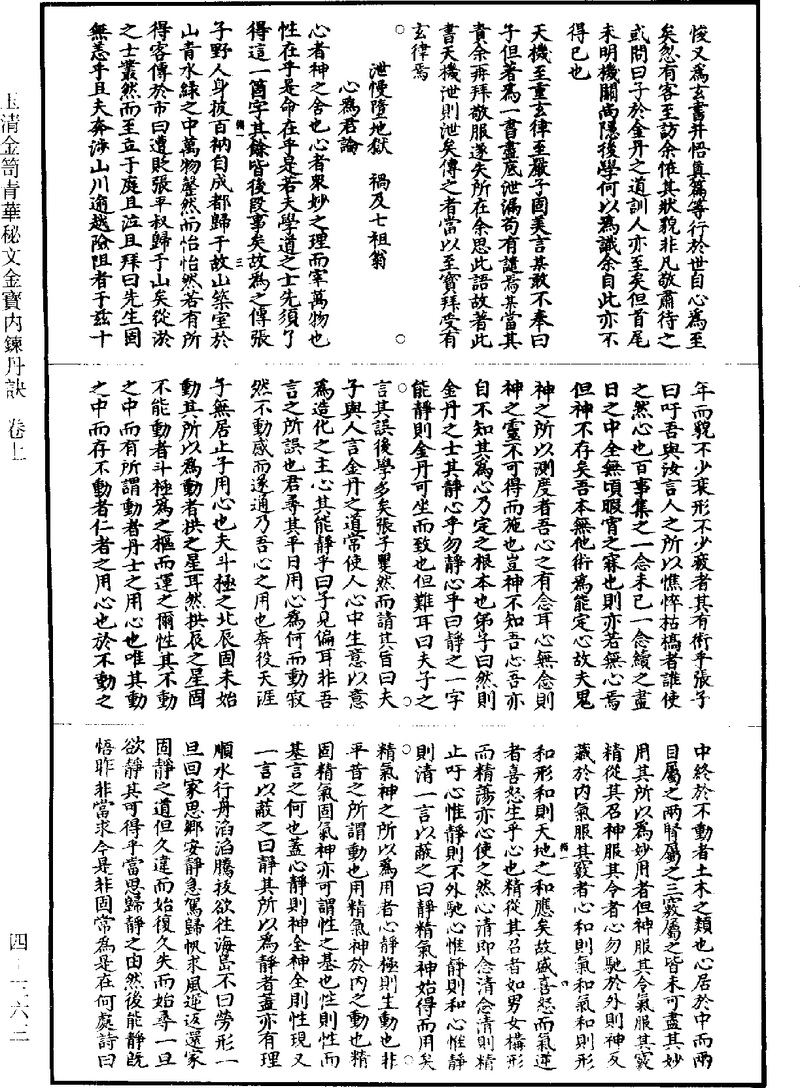 悛又為玄書并悟真篇等行於世自心為至
矣忽有客至訪余惟其狀貌非凡敬肅待之
或問曰子於金丹之道訓人亦至矣但首尾
未明機關尚隱後學何以為識余自此亦不
得已也
天機至重玄律至嚴子固美言某敢不奉曰
子但著為一書盡底泄漏苟有譴焉某當其
責余再拜敬服遂失所在余思此語故著此
書天機泄則泄矣傳之者當以至寶拜受有
玄律焉
泄慢墮地獄　禍及七祖翁
心為君論
心者神之舍也心者眾妙之理而宰萬物也
性在乎是命在乎是若夫學道之士先須了
得這一箇字其餘皆後段事矣故為之傳張
子野人身披百衲自成都歸于故山築室於
山青水綠之中萬物馨然而怡怡然若有所
得客傳於市曰遺敗張平叔歸于山矣從游
之士叢然而至立于庭且泣且拜曰先生固
無恙乎且夫奔海山川逾越險阻者于茲十
年而貌不少衰形不少疲者其有術乎張子
曰吁吾與汝言人之所以憔悴枯槁者誰使
之然心也百事集之一念未已一念續之盡
日之中全無頃暇宵之寐也則亦若無心焉
但神不存矣吾本無他術為能定心故夫鬼
神之所以測度者吾心之有念耳心無念則
神之靈不可得而施也豈神不知吾心吾亦
自不知其為心乃定之根本也弟子曰然則
金丹之士其靜心乎勿靜心乎曰靜之一字
能靜則金丹可坐而致也但難耳曰夫子之
言其誤後學多矣張子矍然而請其旨曰夫
子與人言金丹之道常使人心中生意以意
為造化之主心其能靜乎曰子見偏耳非吾
言之所誤也君尋其平日用心為何而動寂
然不動感而遂通乃吾心之用也奔役天涯
子無居止子用心也夫斗極之北辰固未始
動其所以為動者拱之星耳然拱辰之星固
不能動者斗極為之樞而運之爾性其不動
之中而有所謂動者丹士之用心也唯其動
之中而存不動者仁者之用心也於不動之
中終於不動者土木之類也心居於中而兩
目屬之兩腎屬之三竅屬之皆未可盡其妙
用其所以為妙用者但神服其令氣服其竅
精從其召神服其令者心勿馳於外則神反
藏於內氣服其竅者心和則氣和氣和則形
和形和則天地之和應矣故盛喜怒而氣逆
者喜怒生乎心也精從其召者如男女構形
而精蕩亦心使之然心清即念清念清則精
止吁心惟靜則不外馳心惟靜則和心惟靜
則清一言以蔽之曰靜精氣神始得而用矣
精氣神之所以為用者心靜極則生動也非
平昔之所謂動也用精氣神於內之動也精
固精氣固氣神亦可謂性之基也性則性而
基言之何也蓋心靜則神全神全則性現又
一言以蔽之曰靜其所以為靜者蓋亦有理
順水行舟滔滔騰技欲往海島不曰勞形一
旦回家思鄉安靜急駕歸帆求風逆返還家
固靜之道但久違而始復久失而始尋一旦
欲靜其可得乎當思歸靜之由然後能靜既
悟昨非當求今是非固常為是在何處詩曰
玉清金笥青華秘文金寶內鍊丹訣　卷上